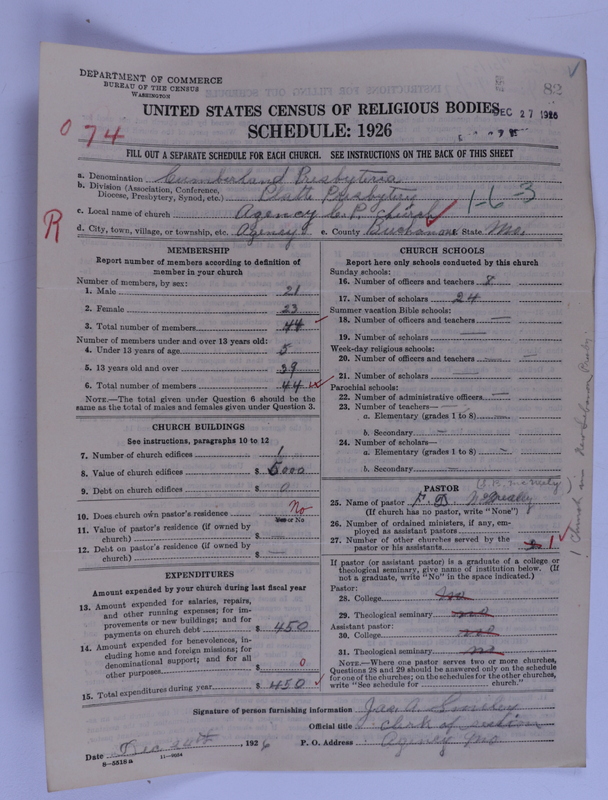 DEPARTMENT OF COMMERCE
BUREAU OF THE CENSUS
WASHINGTON
UNITED STATES CENSUS OF RELIGIOUS BODIES
DEC 27 1926
SCHEDULE: 1926
074
FILL OUT A SEPARATE SCHEDULE FOR EACH CHURCH. SEE INSTRUCTIONS ON THE BACK OF THIS SHEET
a. Denomination Cumberland Presbyteria
b. Division (Association, Conference, Diocese, Presbytery, Synod, etc.) Platte Presbytery
1-6-3
R
c. Local name of church Agency C. P. Church
d. City, town, village, or township, etc. Agency e. County Buchanan f. State Mo.
MEMBERSHIP
Report number of members according to definition of
member in your church
Number of members, by sex:
1. Male 21
2. Female 23
3. Total number of members 44
Number of members under and over 13 years old:
4. Under 13 years of age 5
5. 13 years old and over 39
6. Total number of members 44
NOTE.—The total given under Question 6 should be the
same as the total of males and females given under Question 3.
CHURCH BUILDINGS
See instructions, paragraphs 10 to 12
7. Number of church edifices 1
8. Value of church edifices $ 5000
9. Debt on church edifices $ 0
10. Does church own pastor's residence No
Yes or No
11. Value of pastor's residence (if owned by
church) $
12. Debt on pastor's residence (if owned by
church) $
EXPENDITURES
Amount expended by your church during last fiscal year
13. Amount expended for salaries, repairs,
and other running expenses; for im-
provements or new buildings; and for
payments on church debt $ 450
14. Amount expended for benevolences, in-
cluding home and foreign missions; for
denominational support; and for all
other purposes $ 0
15. Total expenditures during year $ 450
CHURCH SCHOOLS
Report here only schools conducted by this church
Sunday schools:
16. Number of officers and teachers 8
17. Number of scholars 24
Summer vacation Bible schools:
18. Number of officers and teachers —
19. Number of scholars —
Week-day religious schools:
20. Number of officers and teachers —
21. Number of scholars —
Parochial schools:
22. Number of administrative officers —
23. Number of teachers—
a. Elementary (grades 1 to 8) —
b. Secondary —
24. Number of scholars—
a. Elementary (grades 1 to 8) —
b. Secondary —
PASTOR
25. Name of pastor
(If church has no pastor, write "None")
26. Number of ordained ministers, if any, em-
ployed as assistant pastors
27. Number of other churches served by the
pastor or his assistants 1
If pastor (or assistant pastor) is a graduate of a college or
theological seminary, give name of institution below. (If
not a graduate, write "No" in the space indicated.)
Pastor:
28. College no
29. Theological seminary no
Assistant pastor:
30. College no
31. Theological seminary no
NOTE.—Where one pastor serves two or more churches,
Questions 28 and 29 should be answered only on the schedule
for one of the churches; on the schedules for the other churches,
write "See schedule for church."
Signature of person furnishing information Jas. A. Smiley
Official title clerk of session
Date Dec 24th, 1926 P. O. Address Agency Mo
8-5518a 11-9034